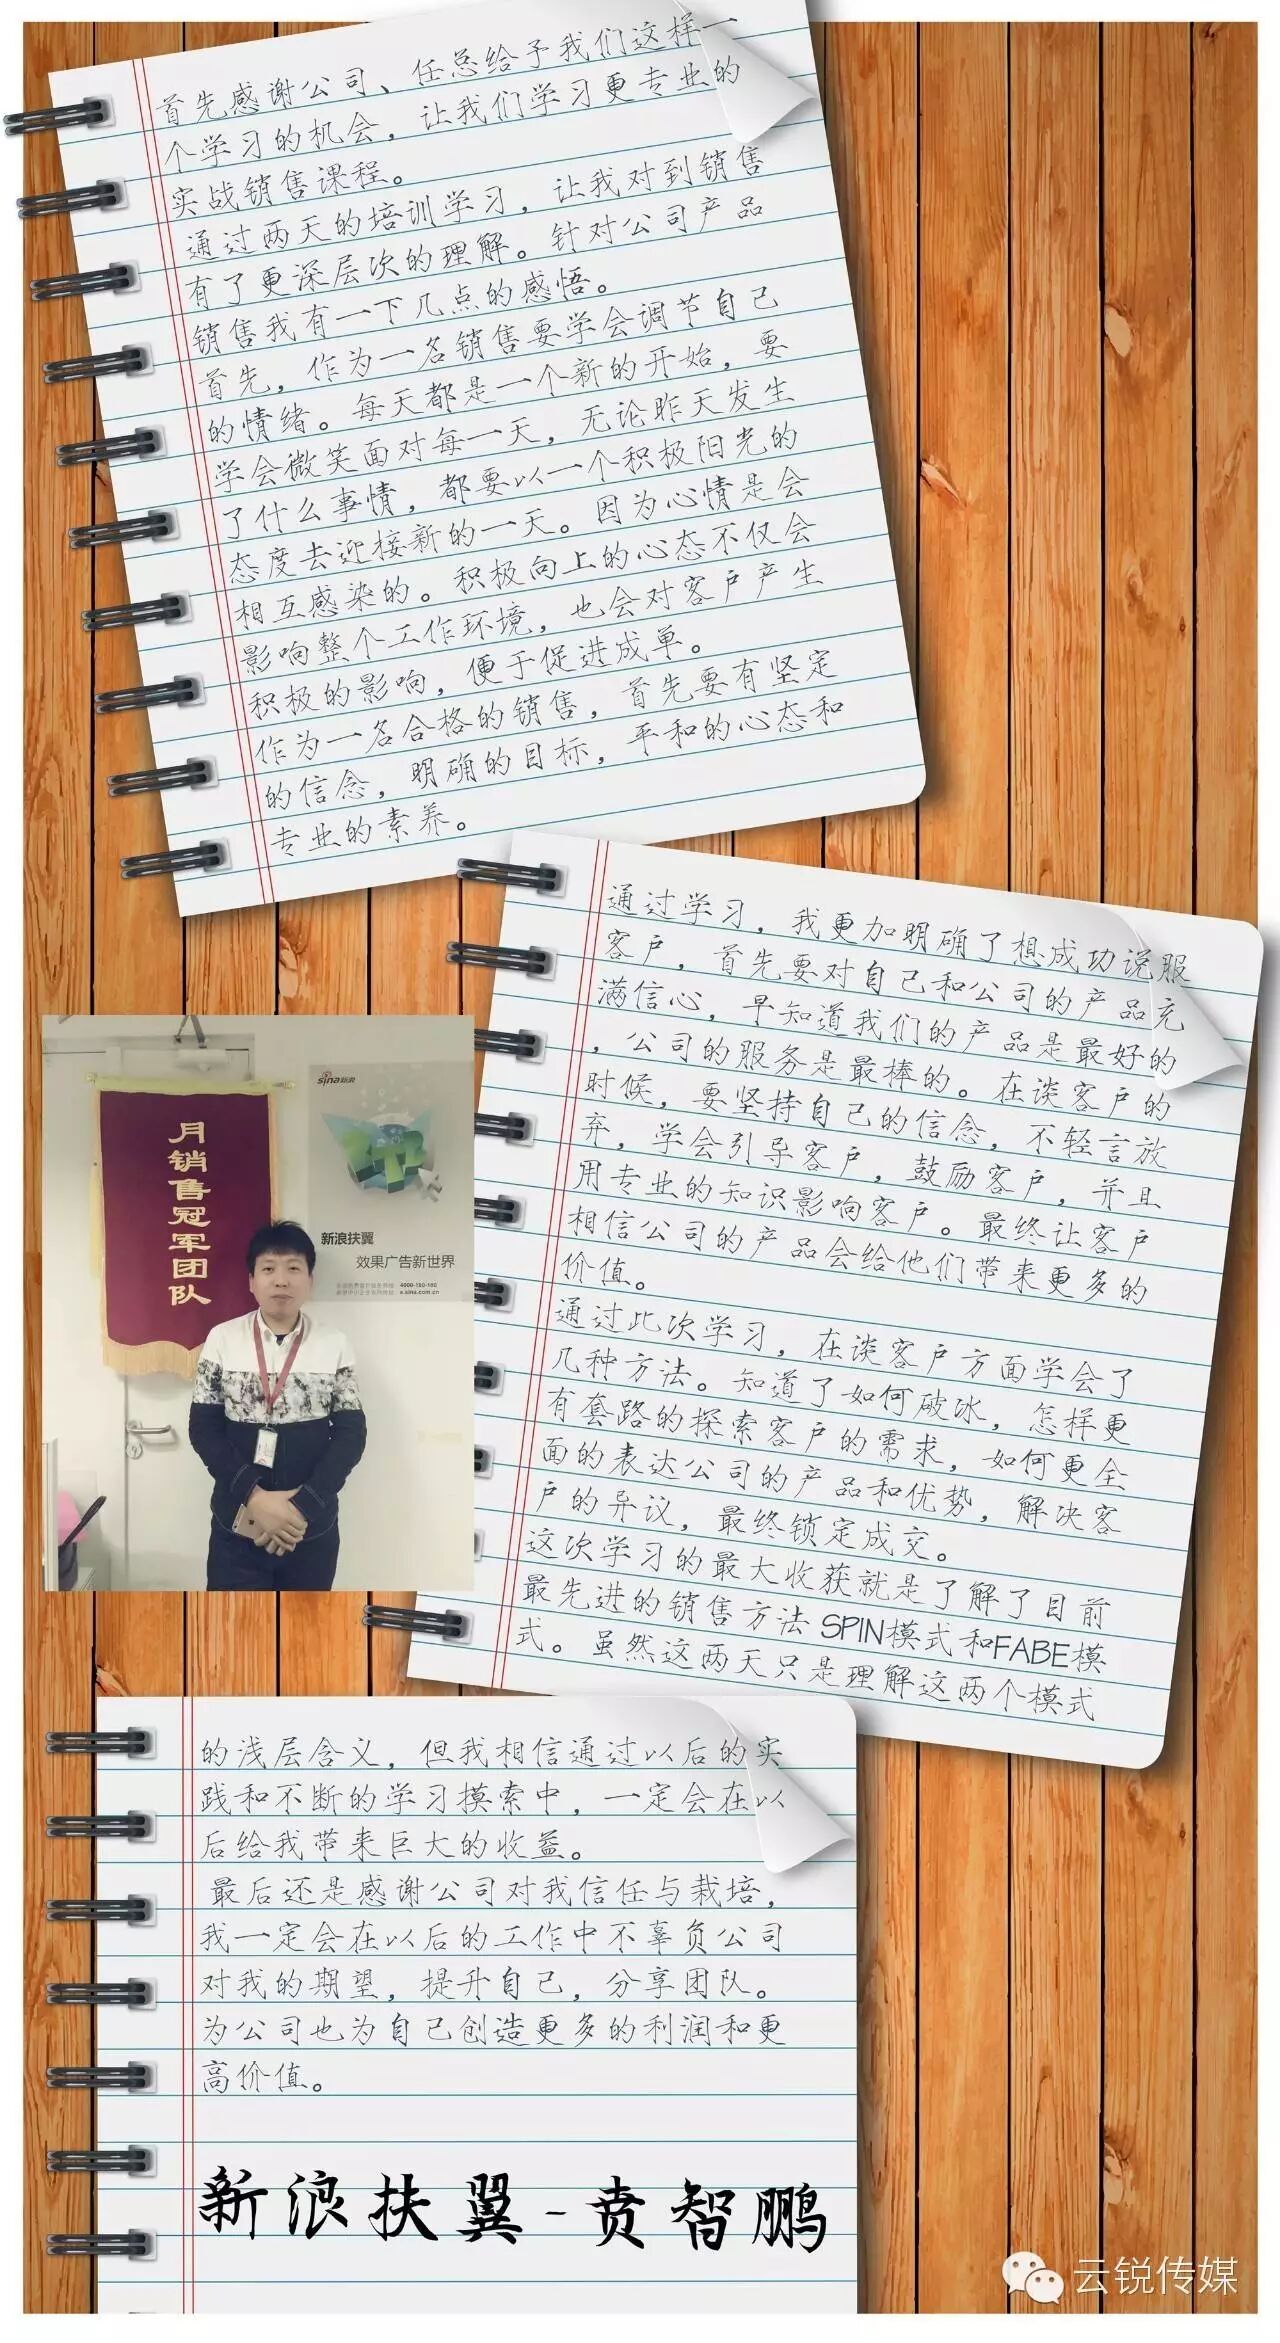 首先感谢公司、任总给予我们这样一
个学习的机会，让我们学习更专业的
实战销售课程。
通过两天的培训学习，让我对到销售
有了更深层次的理解。针对公司产品
销售我有一下几点的感悟。
首先，作为一名销售要学会调节自己
的情绪。每天都是一个新的开始，要
学会微笑面对每一天，无论昨天发生
了什么事情，都要以一个积极阳光的
态度去迎接新的一天。因为心情是会
相互感染的。积极向上的心态不仅会
影响整个工作环境，也会对客户产生
积极的影响，便于促进成单。
作为一名合格的销售，首先要有坚定
的信念，明确的目标，平和的心态和
专业的素养。
通过学习，我更加明确了想成功说服
客户，首先要对自己和公司的产品充
满信心，早知道我们的产品是最好的
，公司的服务是最棒的。在谈客户的
时候，要坚持自己的信念，不轻言放
弃，学会引导客户，鼓励客户，并且
用专业的知识影响客户。最终让客户
相信公司的产品会给他们带来更多的
价值。
通过此次学习，在谈客户方面学会了
几种方法。知道了如何破冰，怎样更
有套路的探索客户的需求，如何更全
面的表达公司的产品和优势，解决客
户的异议，最终锁定成交。
这次学习的最大收获就是了解了目前
最先进的销售方法 SPIN模式和FABE模
式。虽然这两天只是理解这两个模式
月销售冠军团队
sina新浪
新浪扶翼
效果广告新世界
的浅层含义，但我相信通过以后的实
践和不断的学习摸索中，一定会在以
后给我带来巨大的收益。
最后还是感谢公司对我信任与栽培，
我一定会在以后的工作中不辜负公司
对我的期望，提升自己，分享团队。
为公司也为自己创造更多的利润和更
高价值。
新浪扶翼-贲智鹏
云锐传媒